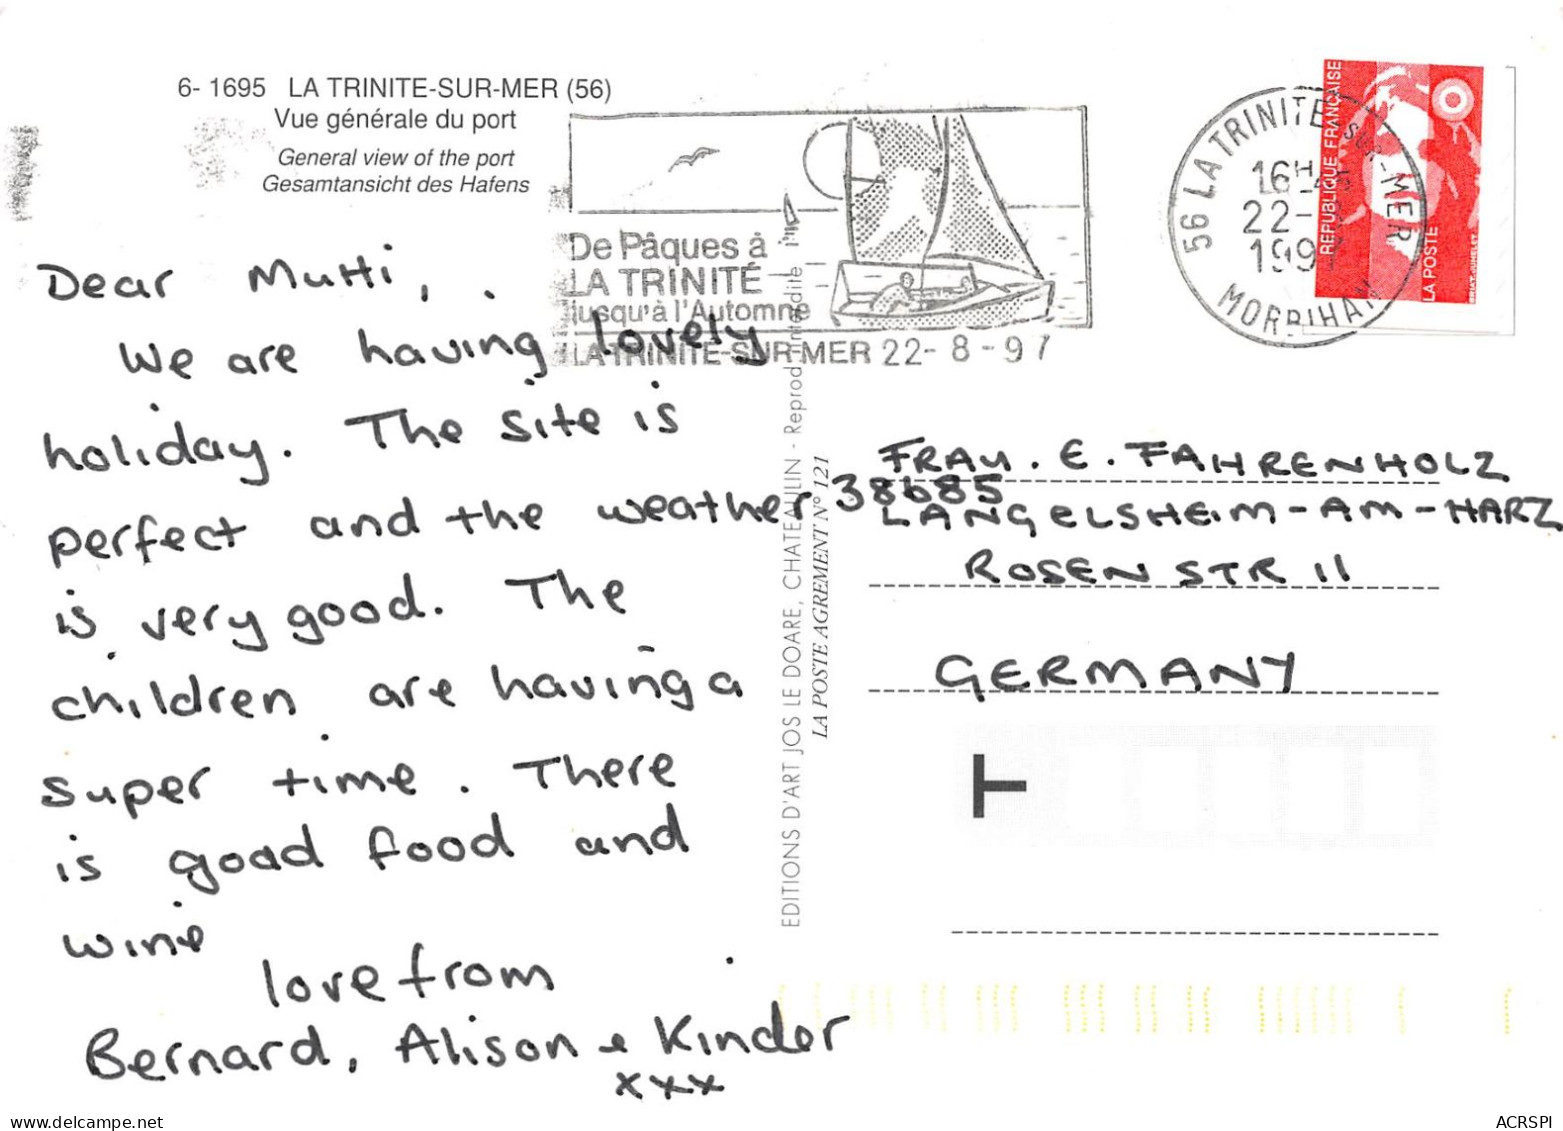 6- 1695 LA TRINITE-SUR-MER (56)
Vue générale du port
General view of the port
Gesamtansicht des Hafens
De Pâques à
LA TRINITÉ
jusqu'à l'Automne
LA TRINITE-SUR-MER 22-8-97
56 LA TRINITE-SUR-MER
16H
22-
199
MORBIHAN
REPUBLIQUE FRANÇAISE
LA POSTE
BRIAT-JUMELET
Dear Mutti,
We are having lovely
holiday. The site is
perfect and the weather
is very good. The
children are having a
super time. There
is good food and
wine
love from
Bernard, Alison & Kinder
xxx
EDITIONS D'ART JOS LE DOARE, CHATEAULIN - Reprod. interdite
LA POSTE AGREMENT N° 121
FRAU. E. FAHRENHOLZ
38685
LANGELSHEIM-AM-HARZ
ROSEN STR 11
GERMANY
T
delcampe.net
ACRSPI